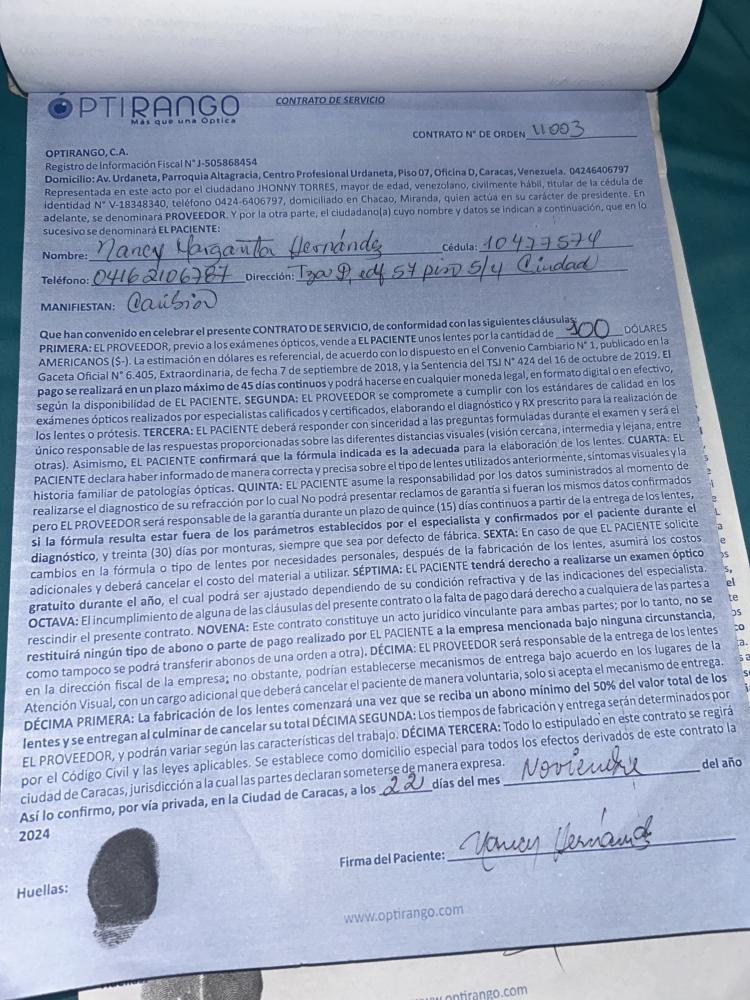 ÓPTIRANGO
Más que una Óptica
CONTRATO DE SERVICIO
CONTRATO N° DE ORDEN 11003
OPTIRANGO, C.A.
Registro de Información Fiscal N° J-505868454
Domicilio: Av. Urdaneta, Parroquia Altagracia, Centro Profesional Urdaneta, Piso 07, Oficina D, Caracas, Venezuela. 04246406797
Representada en este acto por el ciudadano JHONNY TORRES, mayor de edad, venezolano, civilmente hábil, titular de la cédula de
identidad N° V-18348340, teléfono 0424-6406797, domiciliado en Chacao, Miranda, quien actúa en su carácter de presidente. En
adelante, se denominará PROVEEDOR. Y por la otra parte, el ciudadano(a) cuyo nombre y datos se indican a continuación, que en lo
sucesivo se denominará EL PACIENTE:
Nombre: Nancy Margarita Hernández Cédula: 10477574
Teléfono: 04162106787 Dirección: Tza D, edf 57 piso 5/4 Ciudad
MANIFIESTAN: Caribia
Que han convenido en celebrar el presente CONTRATO DE SERVICIO, de conformidad con las siguientes cláusulas:
PRIMERA: EL PROVEEDOR, previo a los exámenes ópticos, vende a EL PACIENTE unos lentes por la cantidad de 100 DÓLARES
AMERICANOS ($-). La estimación en dólares es referencial, de acuerdo con lo dispuesto en el Convenio Cambiario N° 1, publicado en la
Gaceta Oficial N° 6.405, Extraordinaria, de fecha 7 de septiembre de 2018, y la Sentencia del TSJ N° 424 del 16 de octubre de 2019. El
pago se realizará en un plazo máximo de 45 días continuos y podrá hacerse en cualquier moneda legal, en formato digital o en efectivo,
según la disponibilidad de EL PACIENTE. SEGUNDA: EL PROVEEDOR se compromete a cumplir con los estándares de calidad en los
exámenes ópticos realizados por especialistas calificados y certificados, elaborando el diagnóstico y RX prescrito para la realización de
los lentes o prótesis. TERCERA: EL PACIENTE deberá responder con sinceridad a las preguntas formuladas durante el examen y será el
único responsable de las respuestas proporcionadas sobre las diferentes distancias visuales (visión cercana, intermedia y lejana, entre
otras). Asimismo, EL PACIENTE confirmará que la fórmula indicada es la adecuada para la elaboración de los lentes. CUARTA: EL
PACIENTE declara haber informado de manera correcta y precisa sobre el tipo de lentes utilizados anteriormente, síntomas visuales y la
historia familiar de patologías ópticas. QUINTA: EL PACIENTE asume la responsabilidad por los datos suministrados al momento de
realizarse el diagnostico de su refracción por lo cual No podrá presentar reclamos de garantía si fueran los mismos datos confirmados
pero EL PROVEEDOR será responsable de la garantía durante un plazo de quince (15) días continuos a partir de la entrega de los lentes,
si la fórmula resulta estar fuera de los parámetros establecidos por el especialista y confirmados por el paciente durante el
diagnóstico, y treinta (30) días por monturas, siempre que sea por defecto de fábrica. SEXTA: En caso de que EL PACIENTE solicite
cambios en la fórmula o tipo de lentes por necesidades personales, después de la fabricación de los lentes, asumirá los costos
adicionales y deberá cancelar el costo del material a utilizar. SÉPTIMA: EL PACIENTE tendrá derecho a realizarse un examen óptico
gratuito durante el año, el cual podrá ser ajustado dependiendo de su condición refractiva y de las indicaciones del especialista.
OCTAVA: El incumplimiento de alguna de las cláusulas del presente contrato o la falta de pago dará derecho a cualquiera de las partes a
rescindir el presente contrato. NOVENA: Este contrato constituye un acto jurídico vinculante para ambas partes; por lo tanto, no se
restituirá ningún tipo de abono o parte de pago realizado por EL PACIENTE a la empresa mencionada bajo ninguna circunstancia,
como tampoco se podrá transferir abonos de una orden a otra). DÉCIMA: EL PROVEEDOR será responsable de la entrega de los lentes
en la dirección fiscal de la empresa; no obstante, podrían establecerse mecanismos de entrega bajo acuerdo en los lugares de la
Atención Visual, con un cargo adicional que deberá cancelar el paciente de manera voluntaria, solo si acepta el mecanismo de entrega.
DÉCIMA PRIMERA: La fabricación de los lentes comenzará una vez que se reciba un abono mínimo del 50% del valor total de los
lentes y se entregan al culminar de cancelar su total DÉCIMA SEGUNDA: Los tiempos de fabricación y entrega serán determinados por
EL PROVEEDOR, y podrán variar según las características del trabajo. DÉCIMA TERCERA: Todo lo estipulado en este contrato se regirá
por el Código Civil y las leyes aplicables. Se establece como domicilio especial para todos los efectos derivados de este contrato la
ciudad de Caracas, jurisdicción a la cual las partes declaran someterse de manera expresa.
Así lo confirmo, por vía privada, en la Ciudad de Caracas, a los 22 días del mes Noviembre del año
2024
Firma del Paciente: Nancy Hernández
Huellas:
www.optirango.com
www.optirango.com